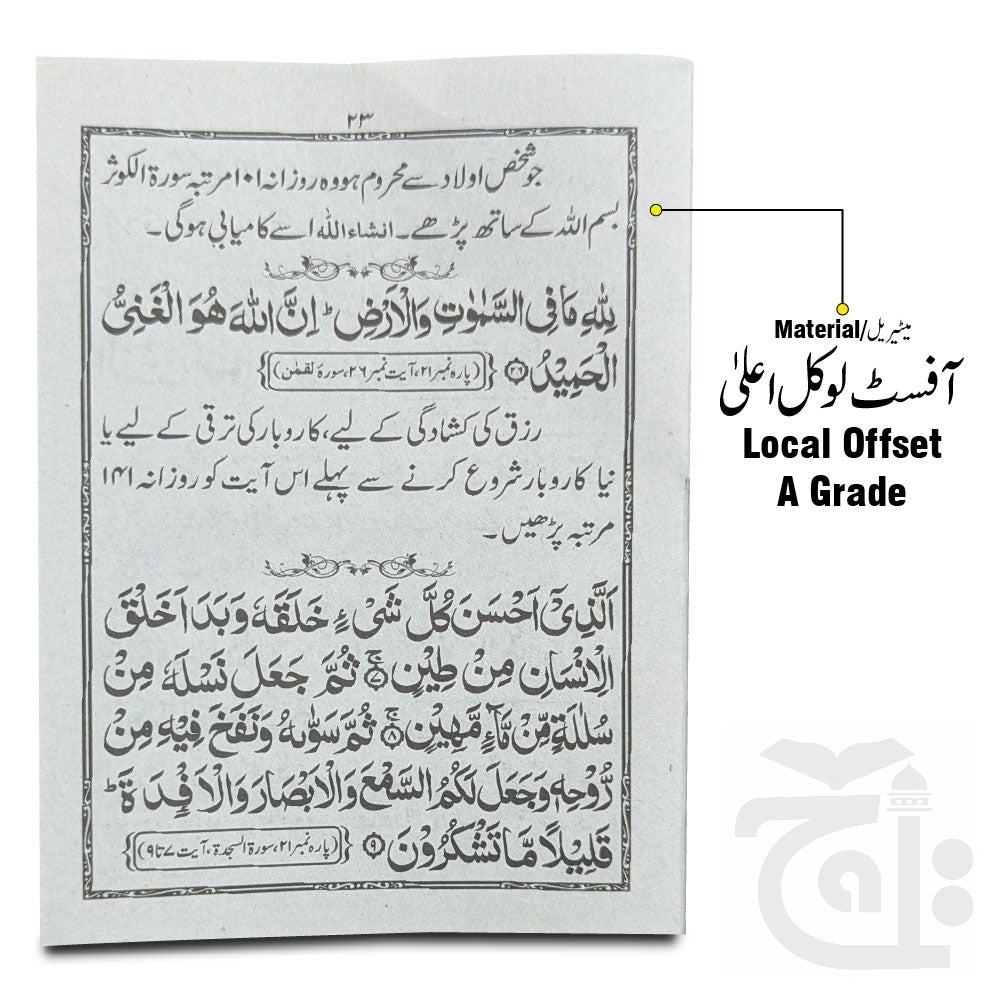 ۲۳
جو شخص اولاد سے محروم ہو وہ روزانہ ۱۰۱ مرتبہ سورۃ الکوثر
بسم اللہ کے ساتھ پڑھے۔ انشاء اللہ اسے کامیابی ہوگی۔
لِلّٰهِ مَا فِی السَّمٰوٰتِ وَالْاَرْضِ ؕ اِنَّ اللّٰهَ هُوَ الْغَنِیُّ
الْحَمِیْدُ ﴿۲۶﴾ {(پارہ نمبر ۲۱، آیت نمبر ۲۶، سورۃ لقمٰن)}
رزق کی کشادگی کے لیے، کاروبار کی ترقی کے لیے یا
نیا کاروبار شروع کرنے سے پہلے اس آیت کو روزانہ ۱۴۱
مرتبہ پڑھیں۔
الَّذِیْۤ اَحْسَنَ كُلَّ شَیْءٍ خَلَقَهٗ وَبَدَاَ خَلْقَ
الْاِنْسَانِ مِنْ طِیْنٍ ۚ﴿۷﴾ ثُمَّ جَعَلَ نَسْلَهٗ مِنْ
سُلٰلَةٍ مِّنْ مَّآءٍ مَّهِیْنٍ ۚ﴿۸﴾ ثُمَّ سَوّٰىهُ وَنَفَخَ فِیْهِ مِنْ
رُّوْحِهٖ وَجَعَلَ لَكُمُ السَّمْعَ وَالْاَبْصَارَ وَالْاَفْـِٕدَةَ ؕ
قَلِیْلًا مَّا تَشْكُرُوْنَ ﴿۹﴾ {(پارہ نمبر ۲۱، سورۃ السجدۃ، آیت ۷ تا ۹)}
Material/میٹیریل
آفسٹ لوکل اعلیٰ
Local Offset
A Grade
تاج